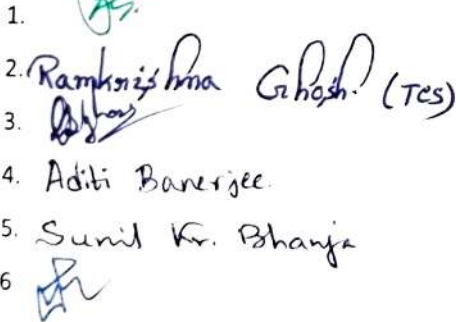 1.
2. Ramkrishna Ghosh. (TCS)
3.
4. Aditi Banerjee.
5. Sunil Kr. Bhanja
6